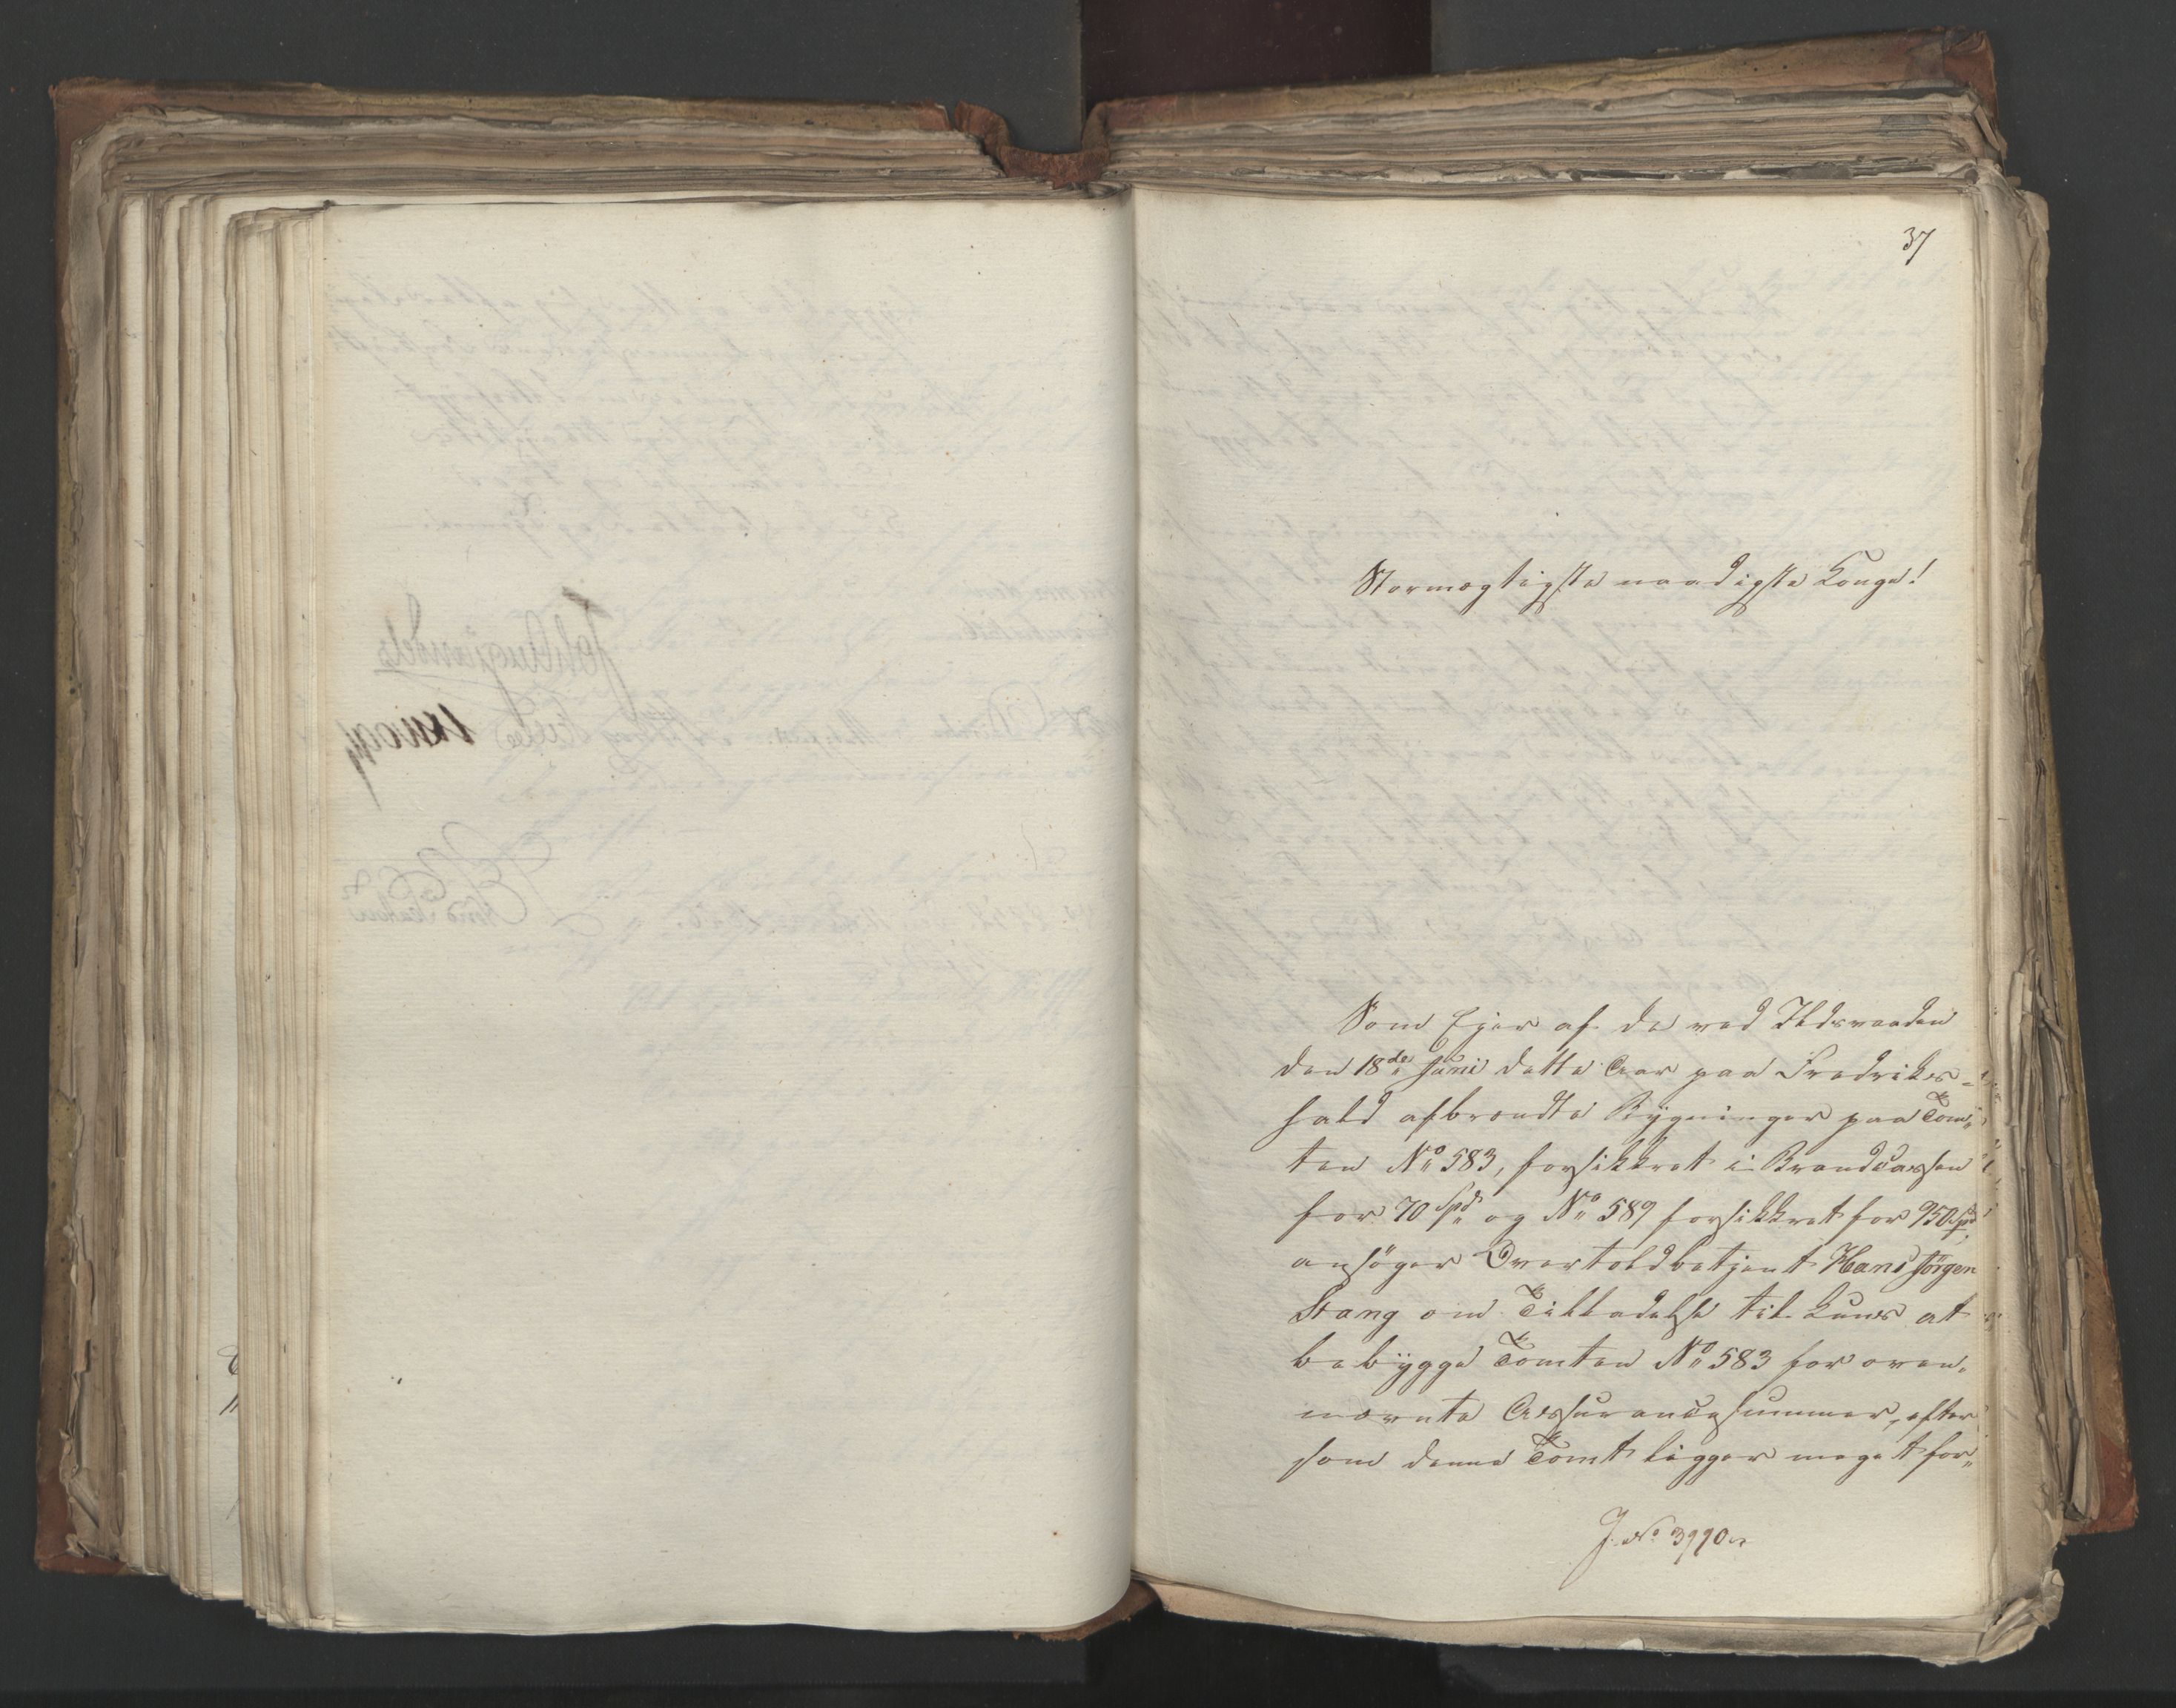 37
Stormægtigste naadigste Konge!
Som Ejer af de ved Ildsvaaden
den 18de Juni dette Aar paa Fredriks-
hald afbrændte Bygninger paa Tom„
ten No 583, forsikkret i Brandcassen
for 70 Spd og No 589 forsikkret for 950 Spd,
ansøger Overtoldbetjent Hans Jörgen
Stang om Tilladelse til kuns at
bebygge Tomten No 583 for oven„
nævnte Assurancesummer, efter
som denne Tomt ligger meget for„
J. No 3990